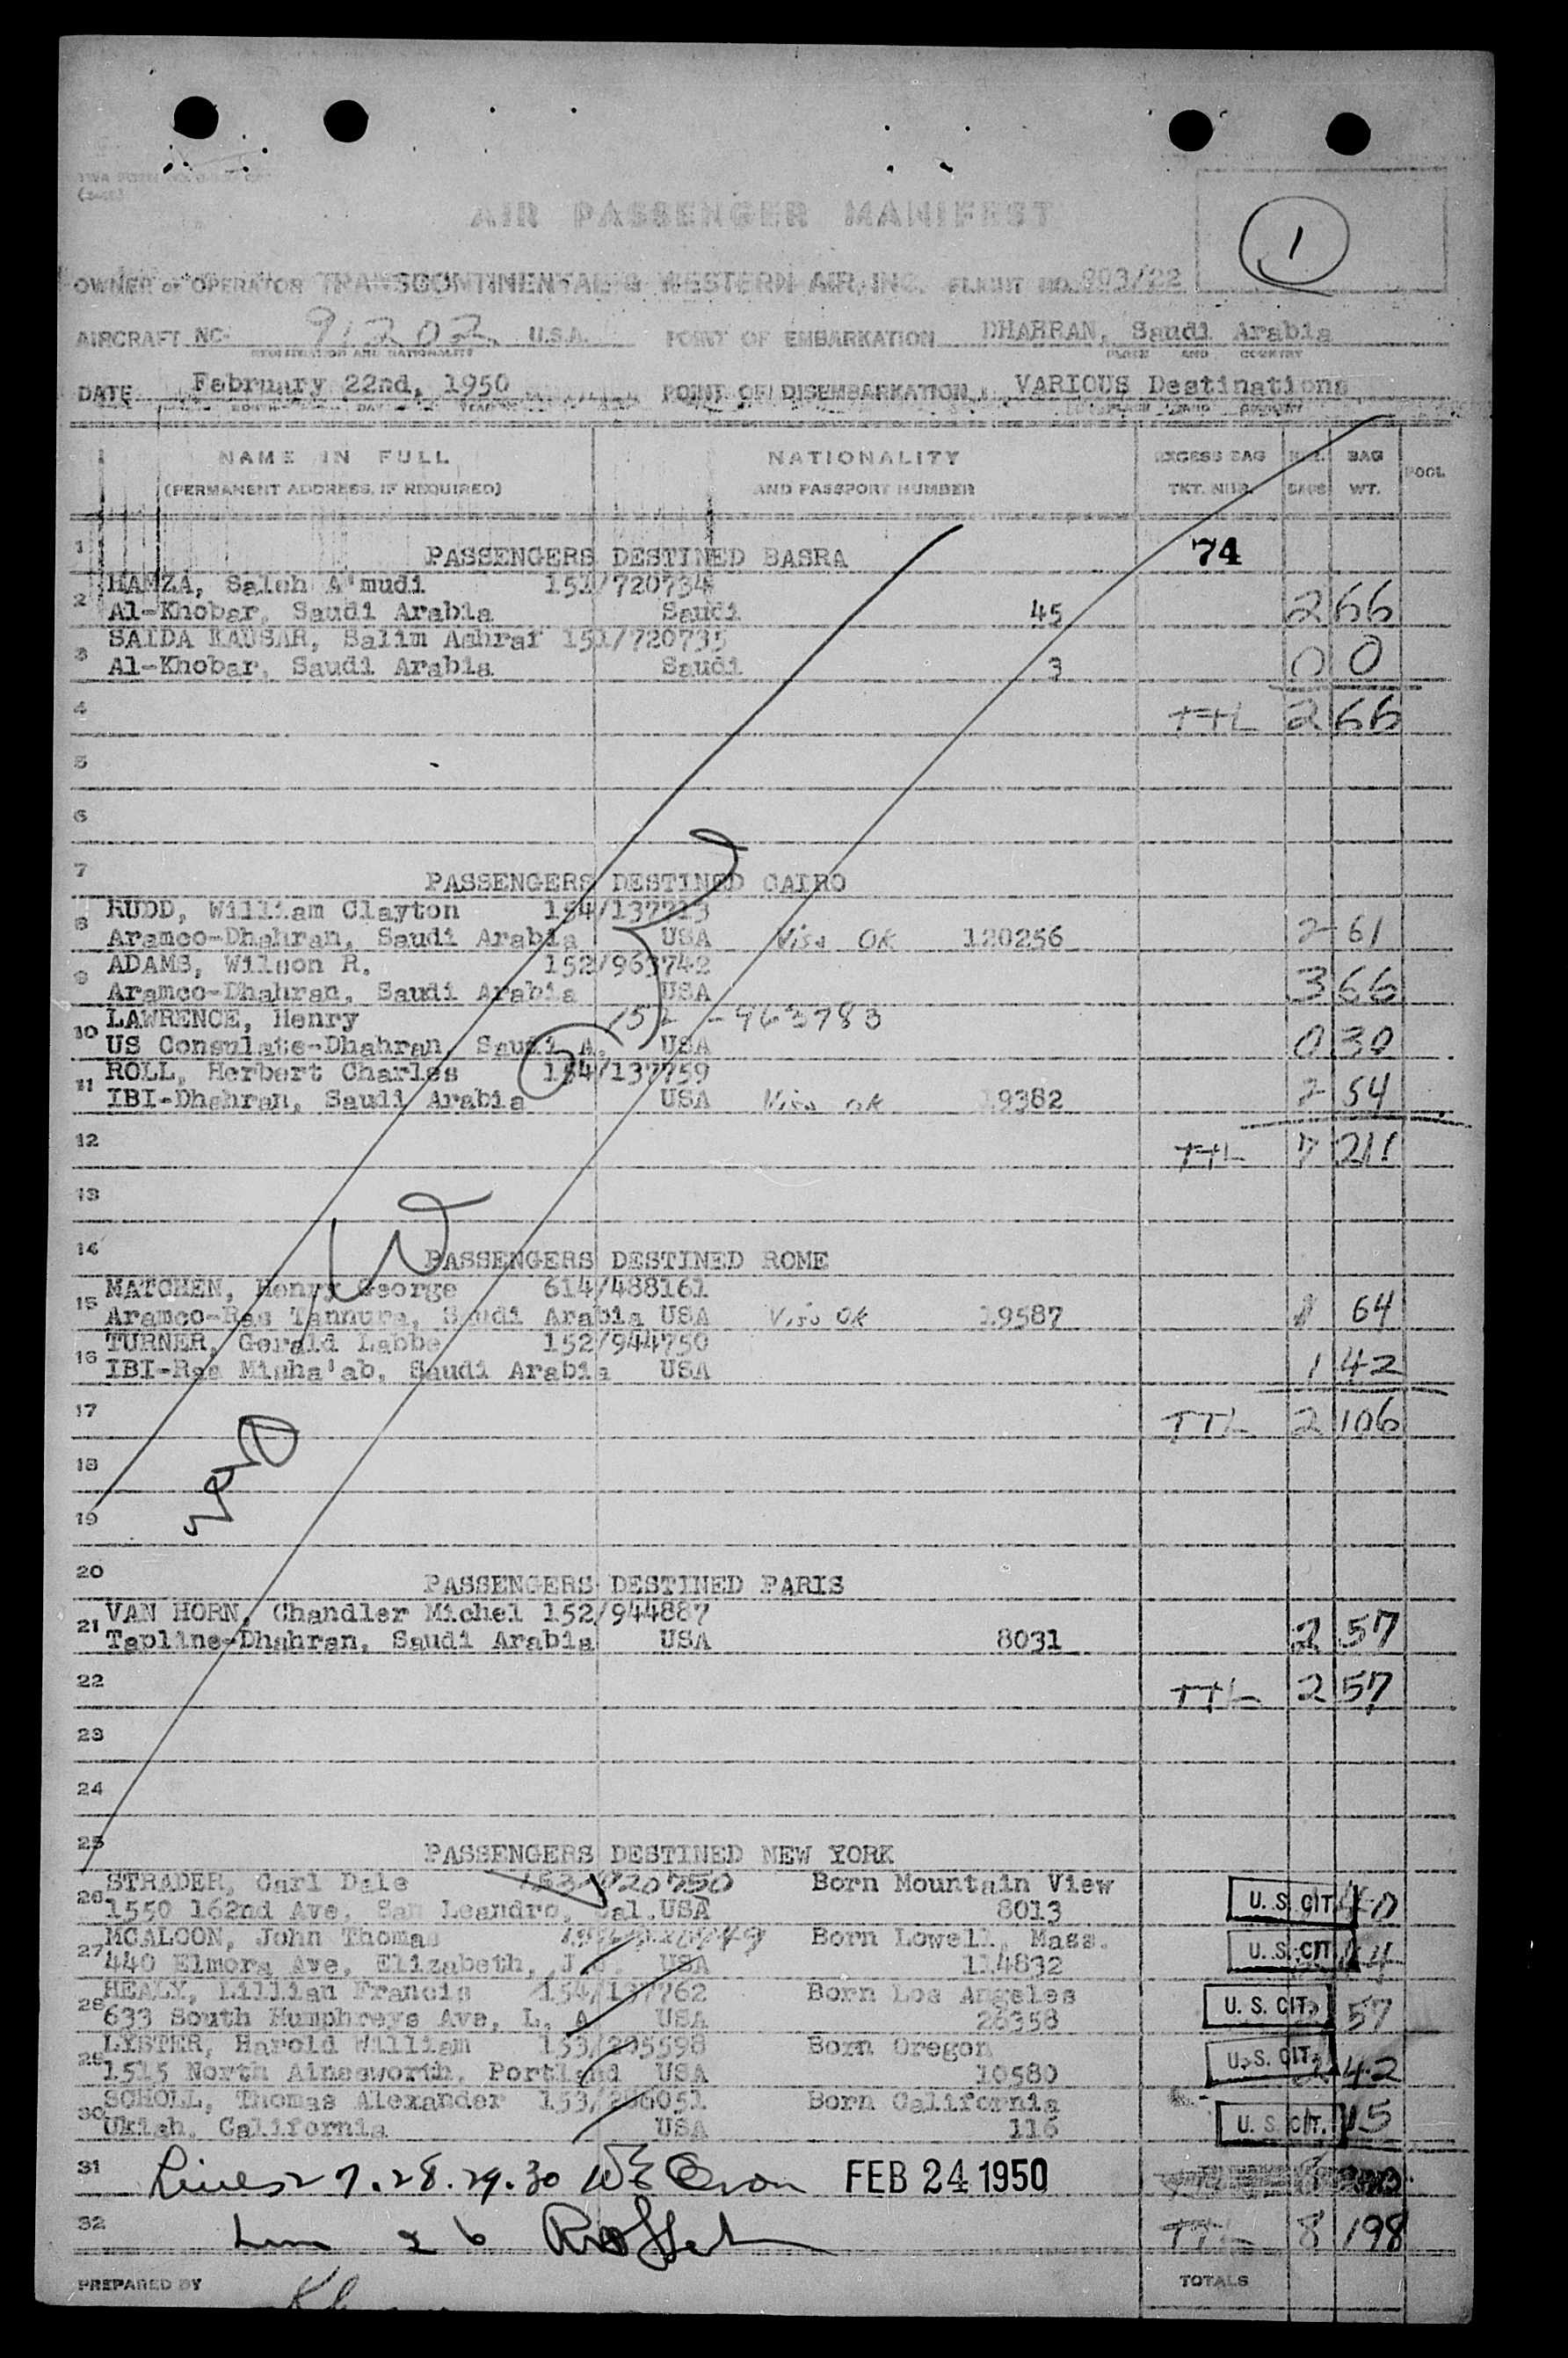 AIR PASSENGER MANIFEST
1
OWNER OR OPERATOR TRANSCONTINENTAL & WESTERN AIR, INC. FLIGHT NO. 903/22
AIRCRAFT NO. 91202 U.S.A. POINT OF EMBARKATION DHAHRAN, Saudi Arabia
REGISTRATION AND NATIONALITY PLACE AND COUNTRY
DATE February 22nd, 1950 POINT OF DISEMBARKATION VARIOUS Destinations
MONTH DAY YEAR PLACE AND COUNTRY
NAME IN FULL NATIONALITY EXCESS BAG BAG POOL
(PERMANENT ADDRESS, IF REQUIRED) AND PASSPORT NUMBER TKT. NBR. BAGS WT.
1 PASSENGERS DESTINED BASRA 74
HAMZA, Saleh A'mudi 151/720734
2 Al-Khobar, Saudi Arabia Saudi 45 2 66
SAIDA KAUSAR, Salim Ashraf 151/720735
3 Al-Khobar, Saudi Arabia Saudi 3 0 0
4 TTL 2 66
5
6
7 PASSENGERS DESTINED CAIRO
RUDD, William Clayton 154/137713
8 Aramco-Dhahran, Saudi Arabia USA Visa OK 120256 2 61
ADAMS, Wilson R. 152/963742
9 Aramco-Dhahran, Saudi Arabia USA 3 66
LAWRENCE, Henry 152-963783
10 US Consulate-Dhahran, Saudi A. USA 0 30
ROLL, Herbert Charles 154/137759
11 IBI-Dhahran, Saudi Arabia USA Visa OK 19382 2 54
12 TTL 7 211
13
14 PASSENGERS DESTINED ROME
MATCHEN, Henry George 614/488161
15 Aramco-Ras Tannura, Saudi Arabia USA Visa OK 19587 1 64
TURNER, Gerald Labbe 152/944750
16 IBI-Ras Misha'ab, Saudi Arabia USA 1 42
17 TTL 2 106
18
19
20 PASSENGERS DESTINED PARIS
VAN HORN, Chandler Michel 152/944887
21 Tapline-Dhahran, Saudi Arabia USA 8031 2 57
22 TTL 2 57
23
24
25 PASSENGERS DESTINED NEW YORK
STRADER, Carl Dale 720750 Born Mountain View
26 1550 162nd Ave, San Leandro, Cal. USA 8013 U. S. CIT. 40
MCALOON, John Thomas Born Lowell, Mass.
27 440 Elmora Ave, Elizabeth, J. USA 114832 U. S. CIT. 44
HEALY, Lillian Francis 154/137762 Born Los Angeles
28 633 South Humphreys Ave, L. A. USA 26358 U. S. CIT. 57
LYSTER, Harold William 153/205598 Born Oregon
29 1515 North Ainesworth, Portland USA 10580 U. S. CIT. 42
SCHOLL, Thomas Alexander 153/206051 Born California
30 Ukiah, California USA 116 U. S. CIT. 15
31 Lines 27.28.29.30 FEB 24 1950
32 26 TTL 8 198
PREPARED BY TOTALS